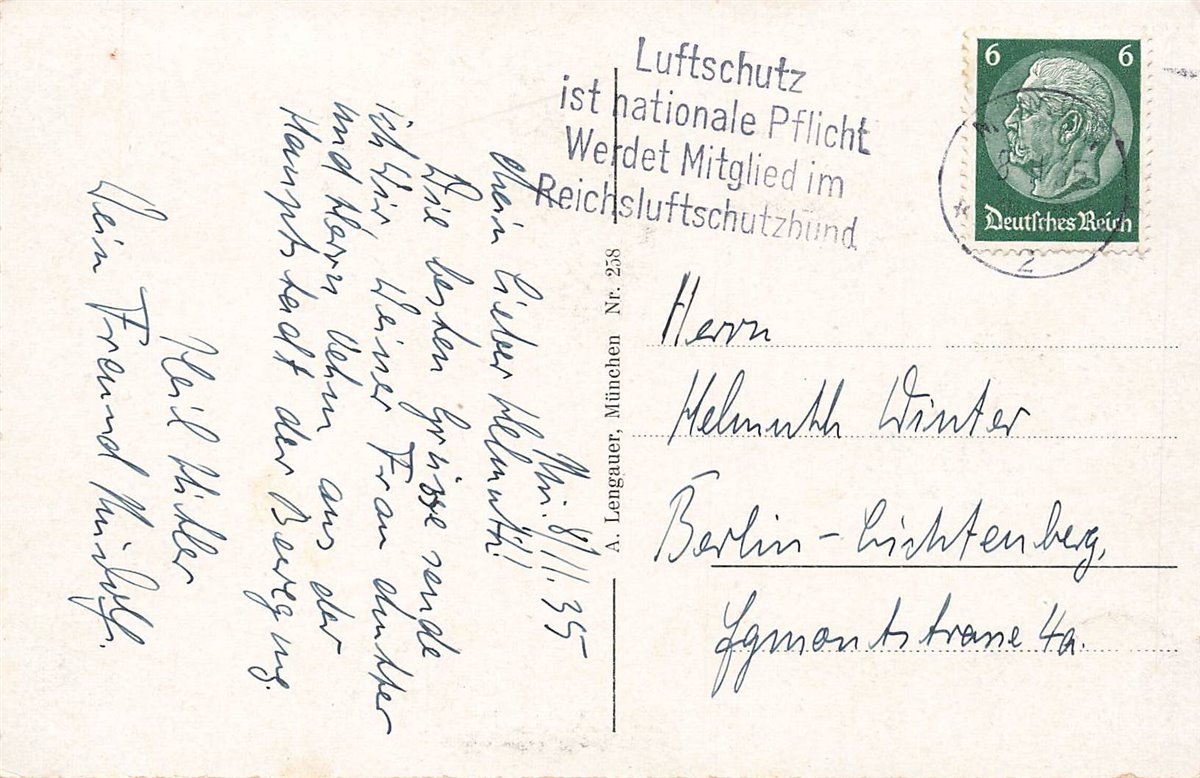 Luftschutz
ist nationale Pflicht
Werdet Mitglied im
Reichsluftschutzbund
6 6
Deutsches Reich
2
A. Lengauer, München Nr. 258
Mü. 8/11. 35
Mein lieber Helmuth!
Die besten Grüsse sende
ich Dir Deiner Frau
und Herrn aus der
Hauptstadt der Bewegung.
Heil Hitler
Dein Freund Rudolf.
Herrn
Helmuth Winter
Berlin-Lichtenberg,
Egmontstrasse 4a.